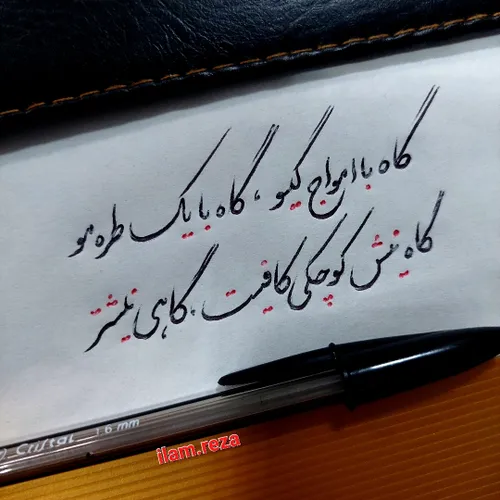 گاه با امواج گیسو ، گاه با یک طره مو
گاه نیش کوچکی کافیست ، گاهی نیشتر
Cristal 1.6 mm
ilam.reza